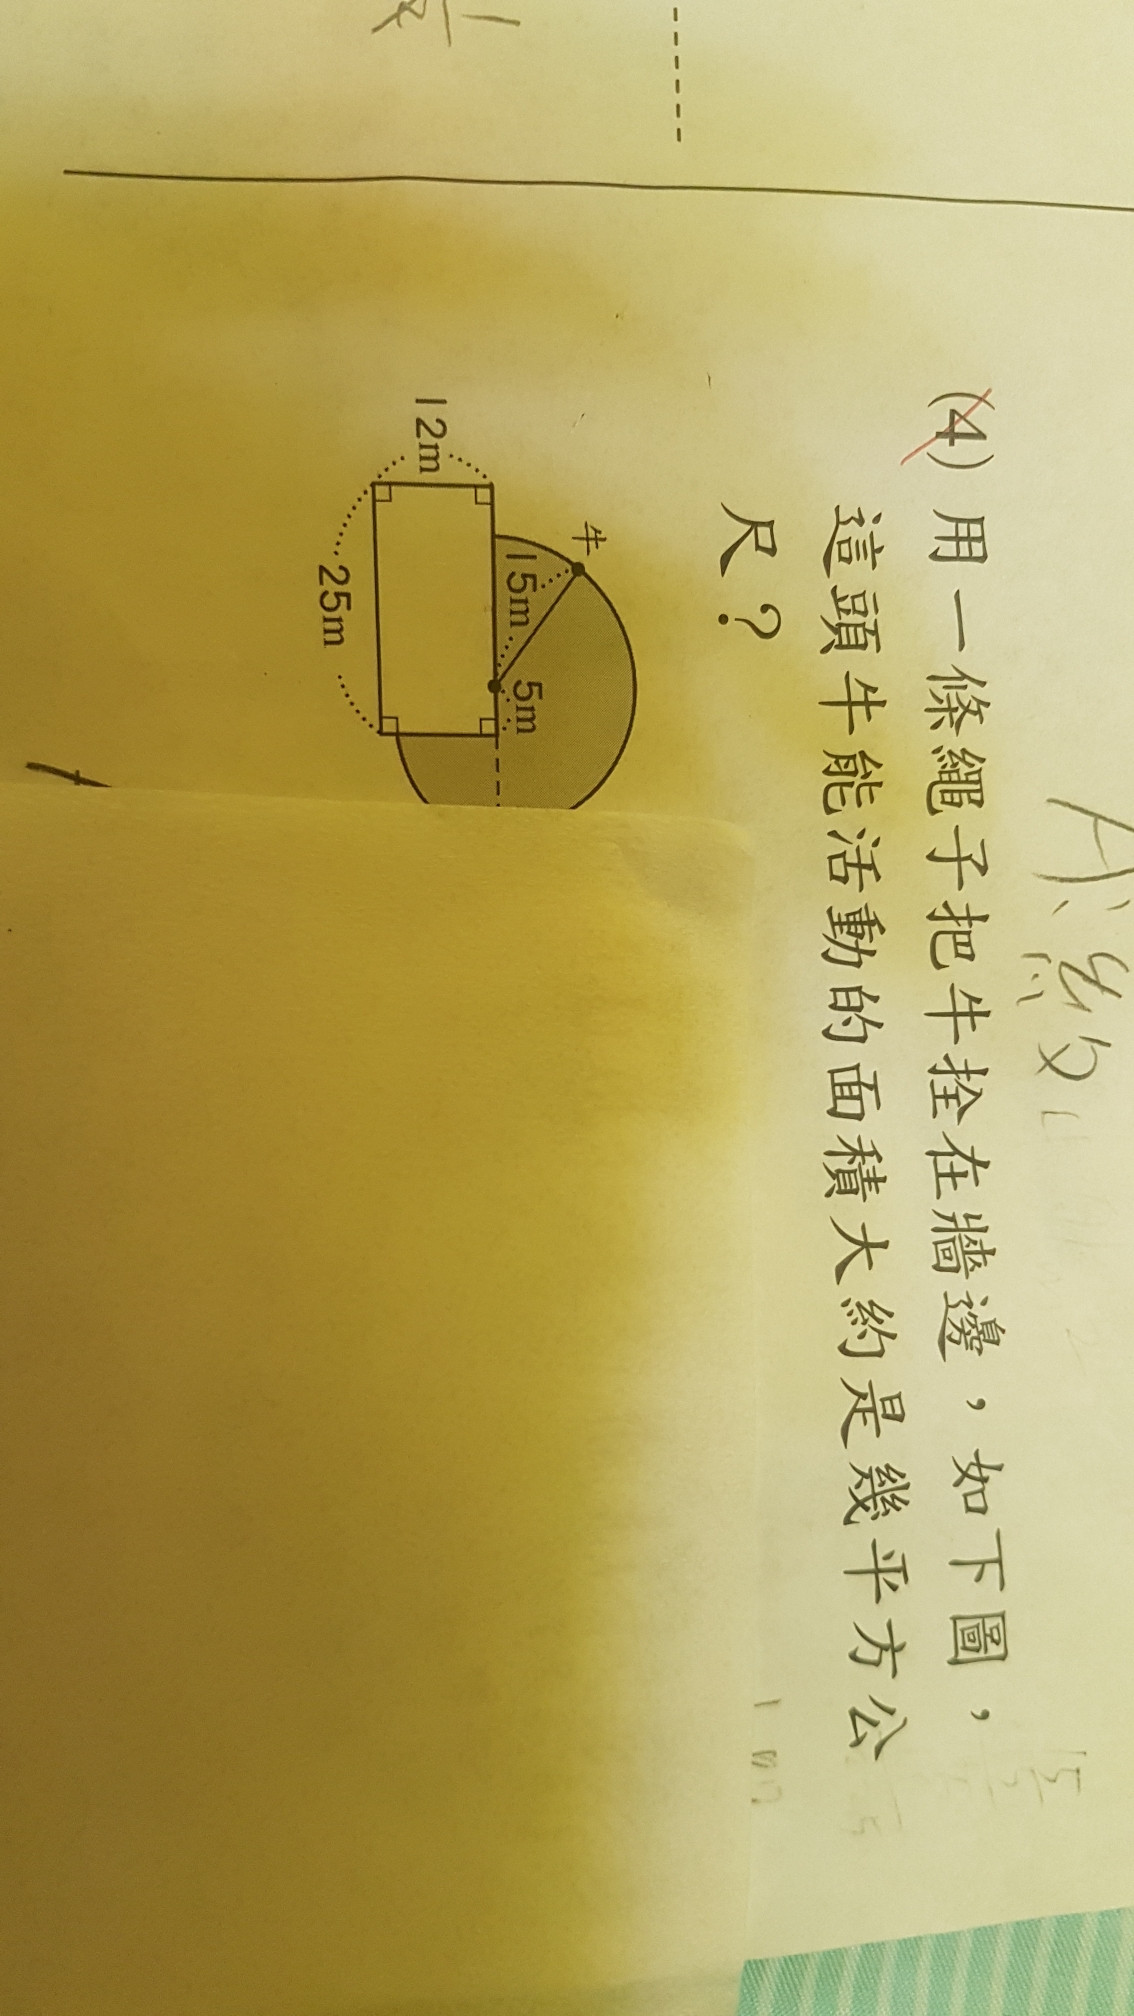 (4) 用一條繩子把牛拴在牆邊，如下圖，
這頭牛能活動的面積大約是幾平方公
尺？
牛
15m
5m
12m
25m